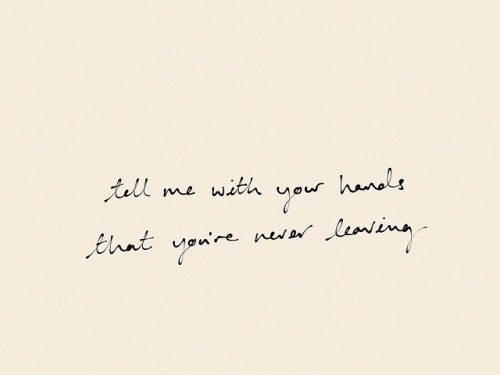 tell me with your hands
that you're never leaving